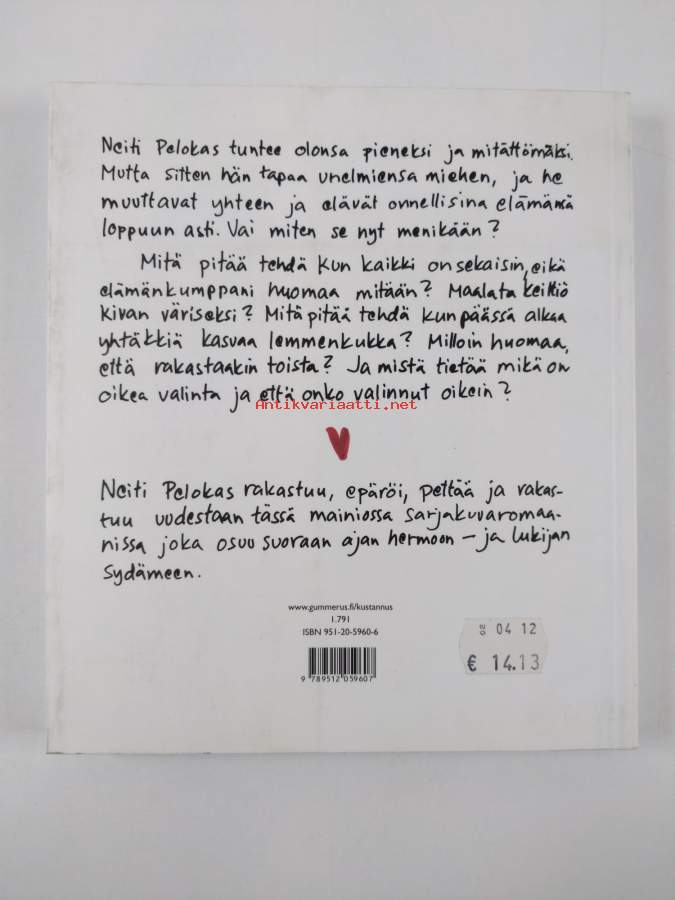 Neiti Pelokas tuntee olonsa pieneksi ja mitättömäksi.
Mutta sitten hän tapaa unelmiensa miehen, ja he
muuttavat yhteen ja elävät onnellisina elämänsä
loppuun asti. Vai miten se nyt menikään?
Mitä pitää tehdä kun kaikki on sekaisin, eikä
elämänkumppani huomaa mitään? Maalata keittiö
kivan väriseksi? Mitä pitää tehdä kun päässä alkaa
yhtäkkiä kasvaa lemmenkukka? Milloin huomaa,
että rakastaakin toista? Ja mistä tietää mikä on
oikea valinta ja että onko valinnut oikein?
Antikvariaatti.net
Neiti Pelokas rakastuu, epäröi, pettää ja rakas-
tuu uudestaan tässä mainiossa sarjakuvaromaa-
nissa joka osuu suoraan ajan hermoon – ja lukijan
sydämeen.
www.gummerus.fi/kustannus
1.791
ISBN 951-20-5960-6
9 789512 059607
02 04 12
€ 14.13